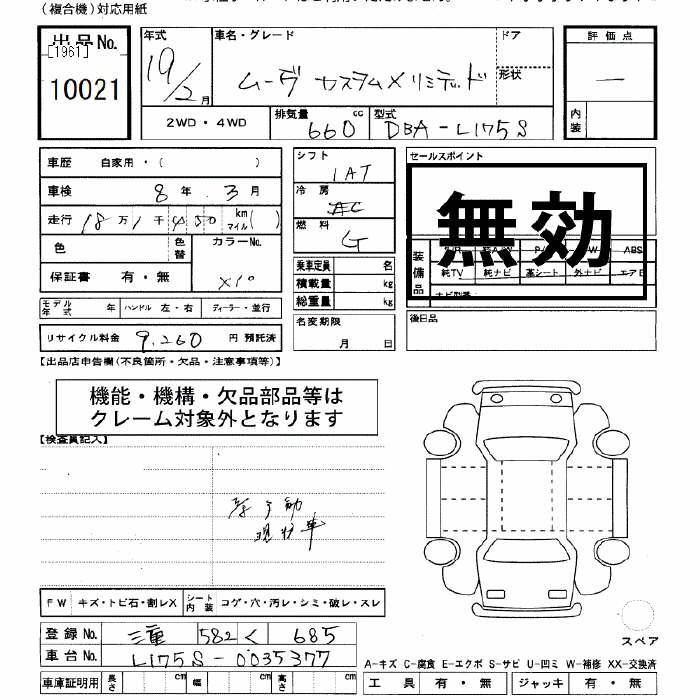 (複合機)対応用紙
出品No.
[1961]
10021
年式
19/2月
車名・グレード
ムーヴ カスタムXリミテッド
ドア
形状
評価点
—
内装
2WD・4WD
排気量 660 cc
型式 DBA-L175S
車歴 自家用・( )
車検 8年 3月
走行 18万1千450 km マイル( )
色
色替
カラーNo.
X10
保証書 有・無
モデル年式 年 ハンドル 左・右 ディーラー・並行
リサイクル料金 9,260 円 預託済
シフト
IAT
冷房
AC
燃料
G
乗車定員 名
積載量 kg
総重量 kg
名変期限
月 日
セールスポイント
無効
装備品
ABS
純TV 純ナビ 革シート 外ナビ エアB
ナビ型番
後日品
【出品店申告欄(不良箇所・欠品・注意事項等)】
機能・機構・欠品部品等は
クレーム対象外となります
【検査員記入】
現状車
FW キズ・トビ石・割レX
シート内装 コゲ・穴・汚レ・シミ・破レ・スレ
登録No. 三重 582 く 685
車台No. L175S-0035377
車庫証明用 長さ cm 幅 cm 高さ cm
スペア
A-キズ C-腐食 E-エクボ S-サビ U-凹ミ W-補修 XX-交換済
工具 有・無 ジャッキ 有・無